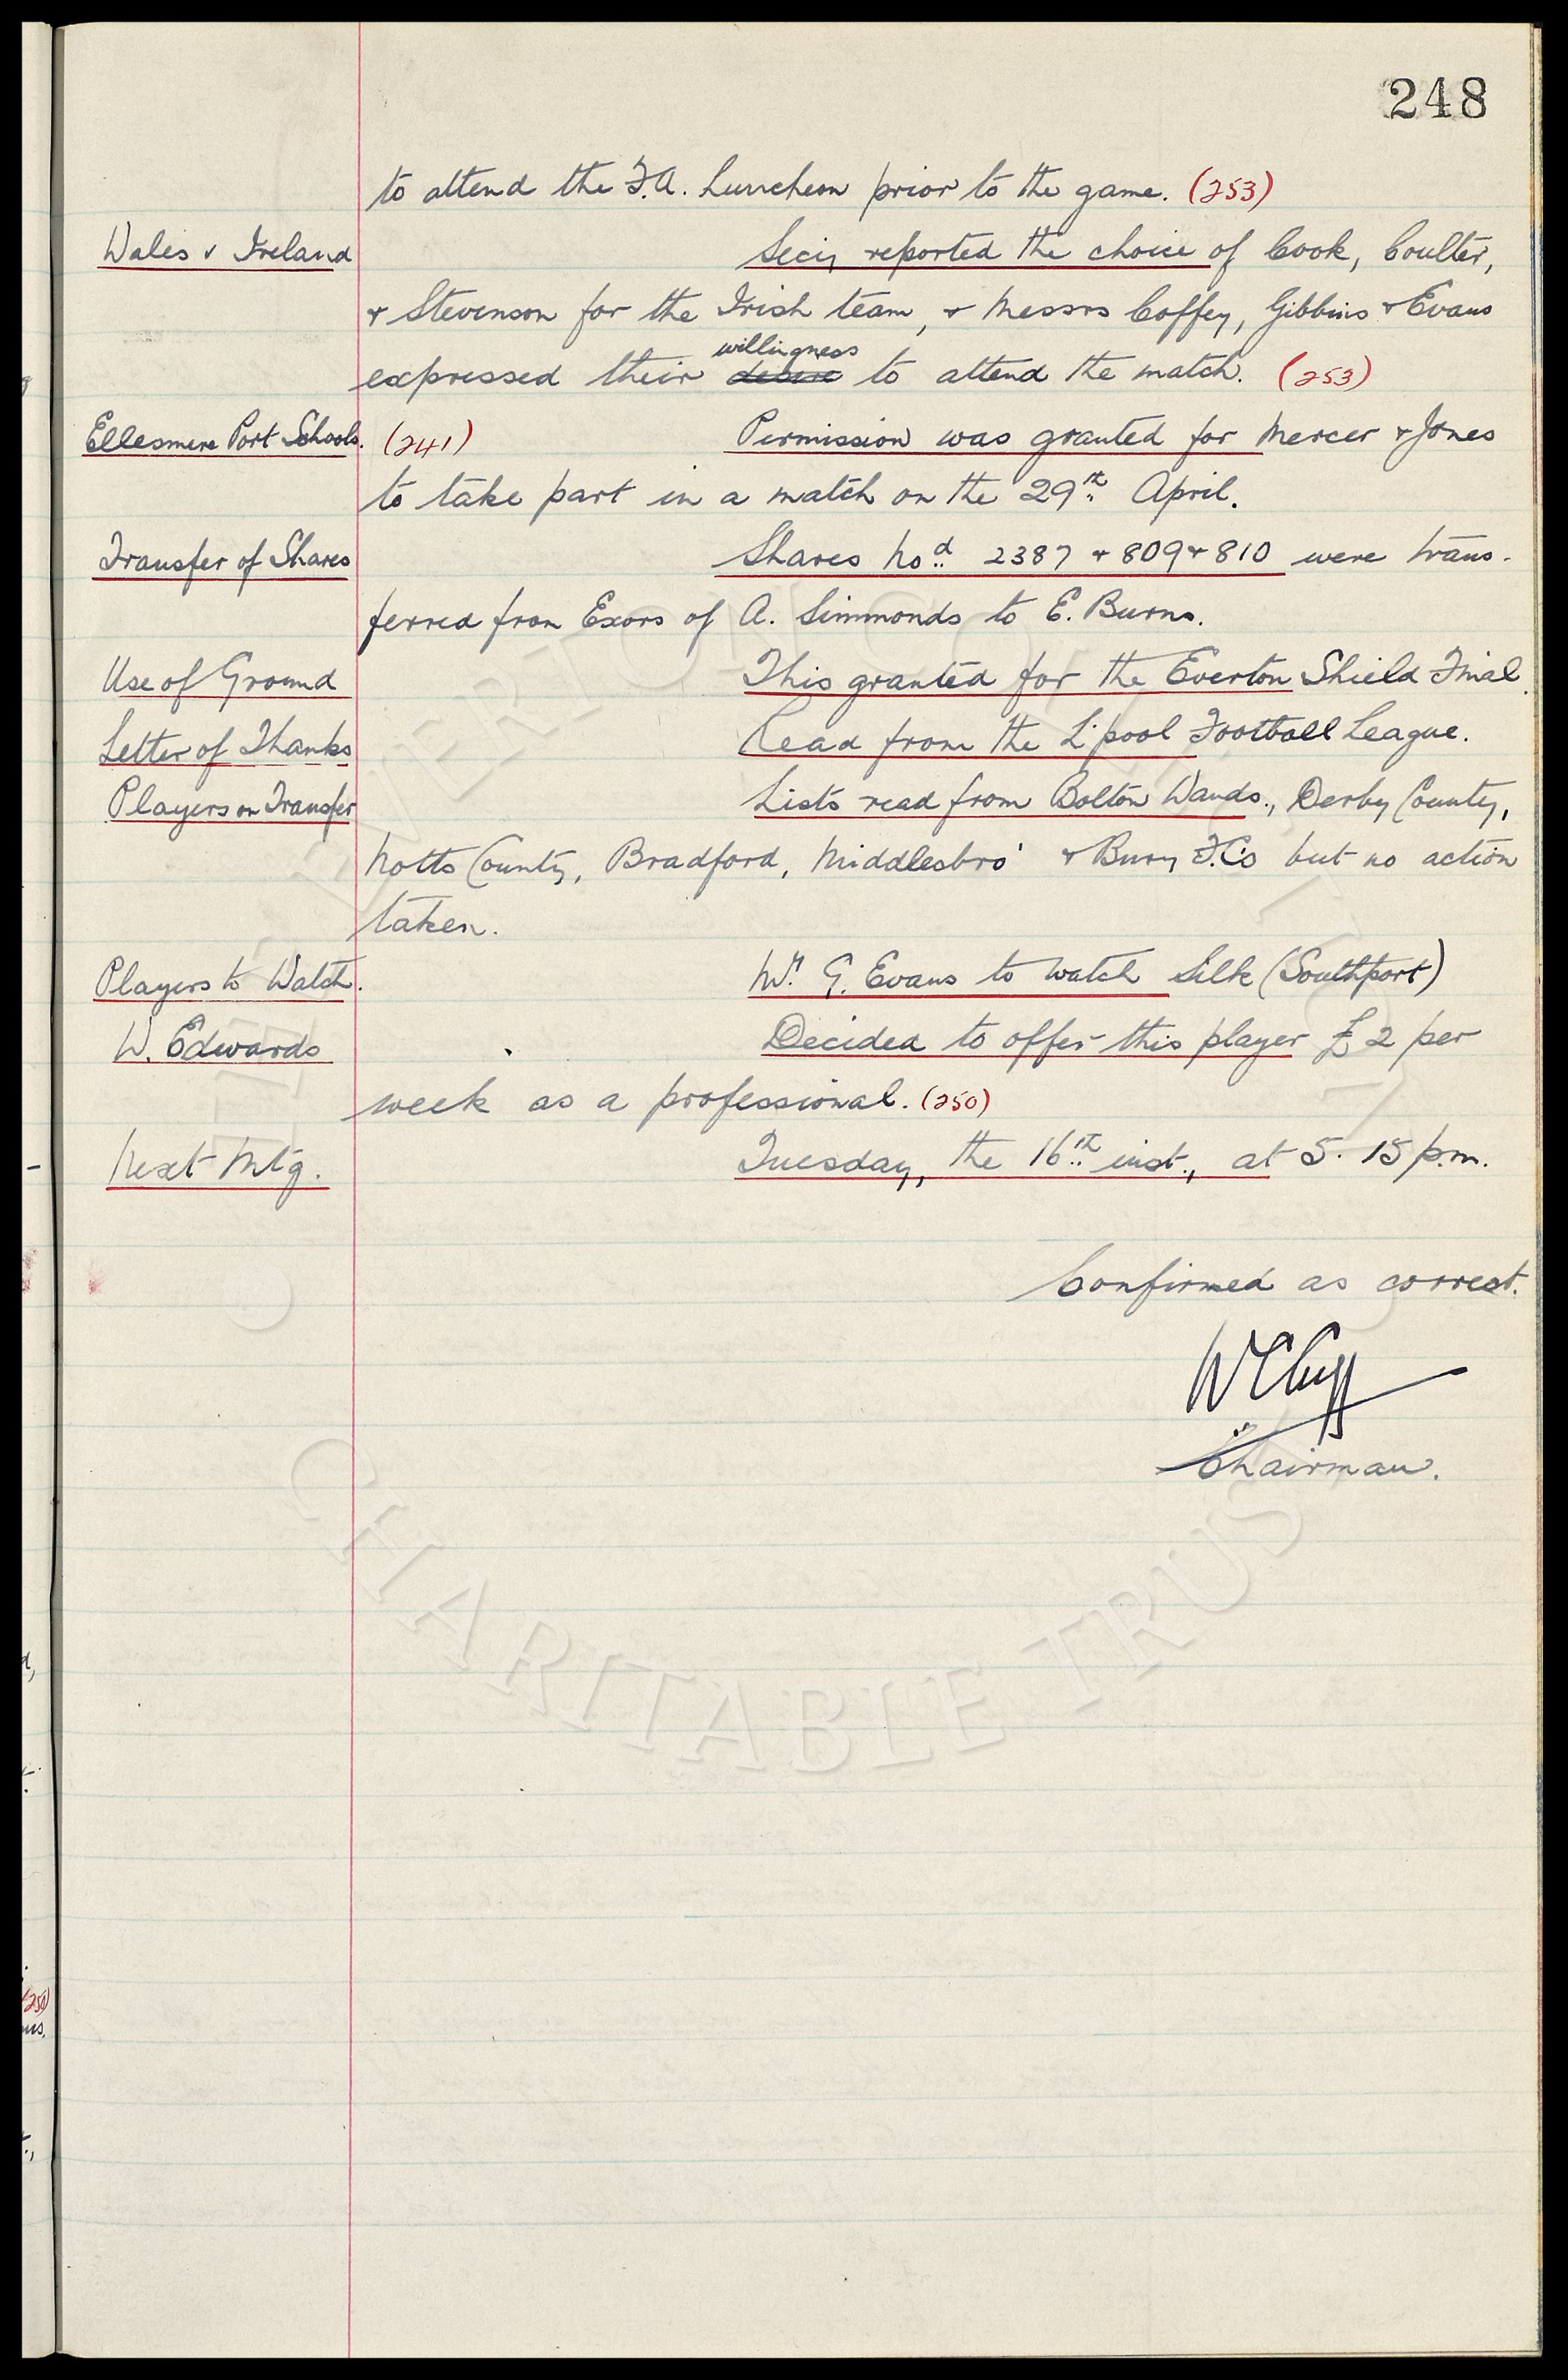 248
to attend the F.A. Luncheon prior to the game. (253)
Wales v Ireland Secy reported the choice of Cook, Coulter,
+ Stevenson for the Irish team, + Messrs Coffey, Gibbins + Evans
willingness
expressed their desire to attend the match. (253)
Ellesmere Port Schools. (241) Permission was granted for Mercer + Jones
to take part in a match on the 29th April.
Transfer of Shares Shares Nod 2387 + 809 + 810 were trans-
ferred from Exors of A. Simmonds to E. Burns.
Use of Ground This granted for the Everton Shield Final.
Letter of Thanks Read from the L'pool Football League.
Players on Transfer Lists read from Bolton Wands., Derby County,
Notts County, Bradford, Middlesbro' + Bury F.C's but no action
taken.
Players to Watch. Mr. G. Evans to watch Silk (Southport)
W. Edwards Decided to offer this player £2 per
week as a professional. (250)
Next Mtg. Tuesday, the 16th inst., at 5.15 p.m.
Confirmed as correct.
W C Cuff
Chairman.
CHARITABLE TRUST
(250)